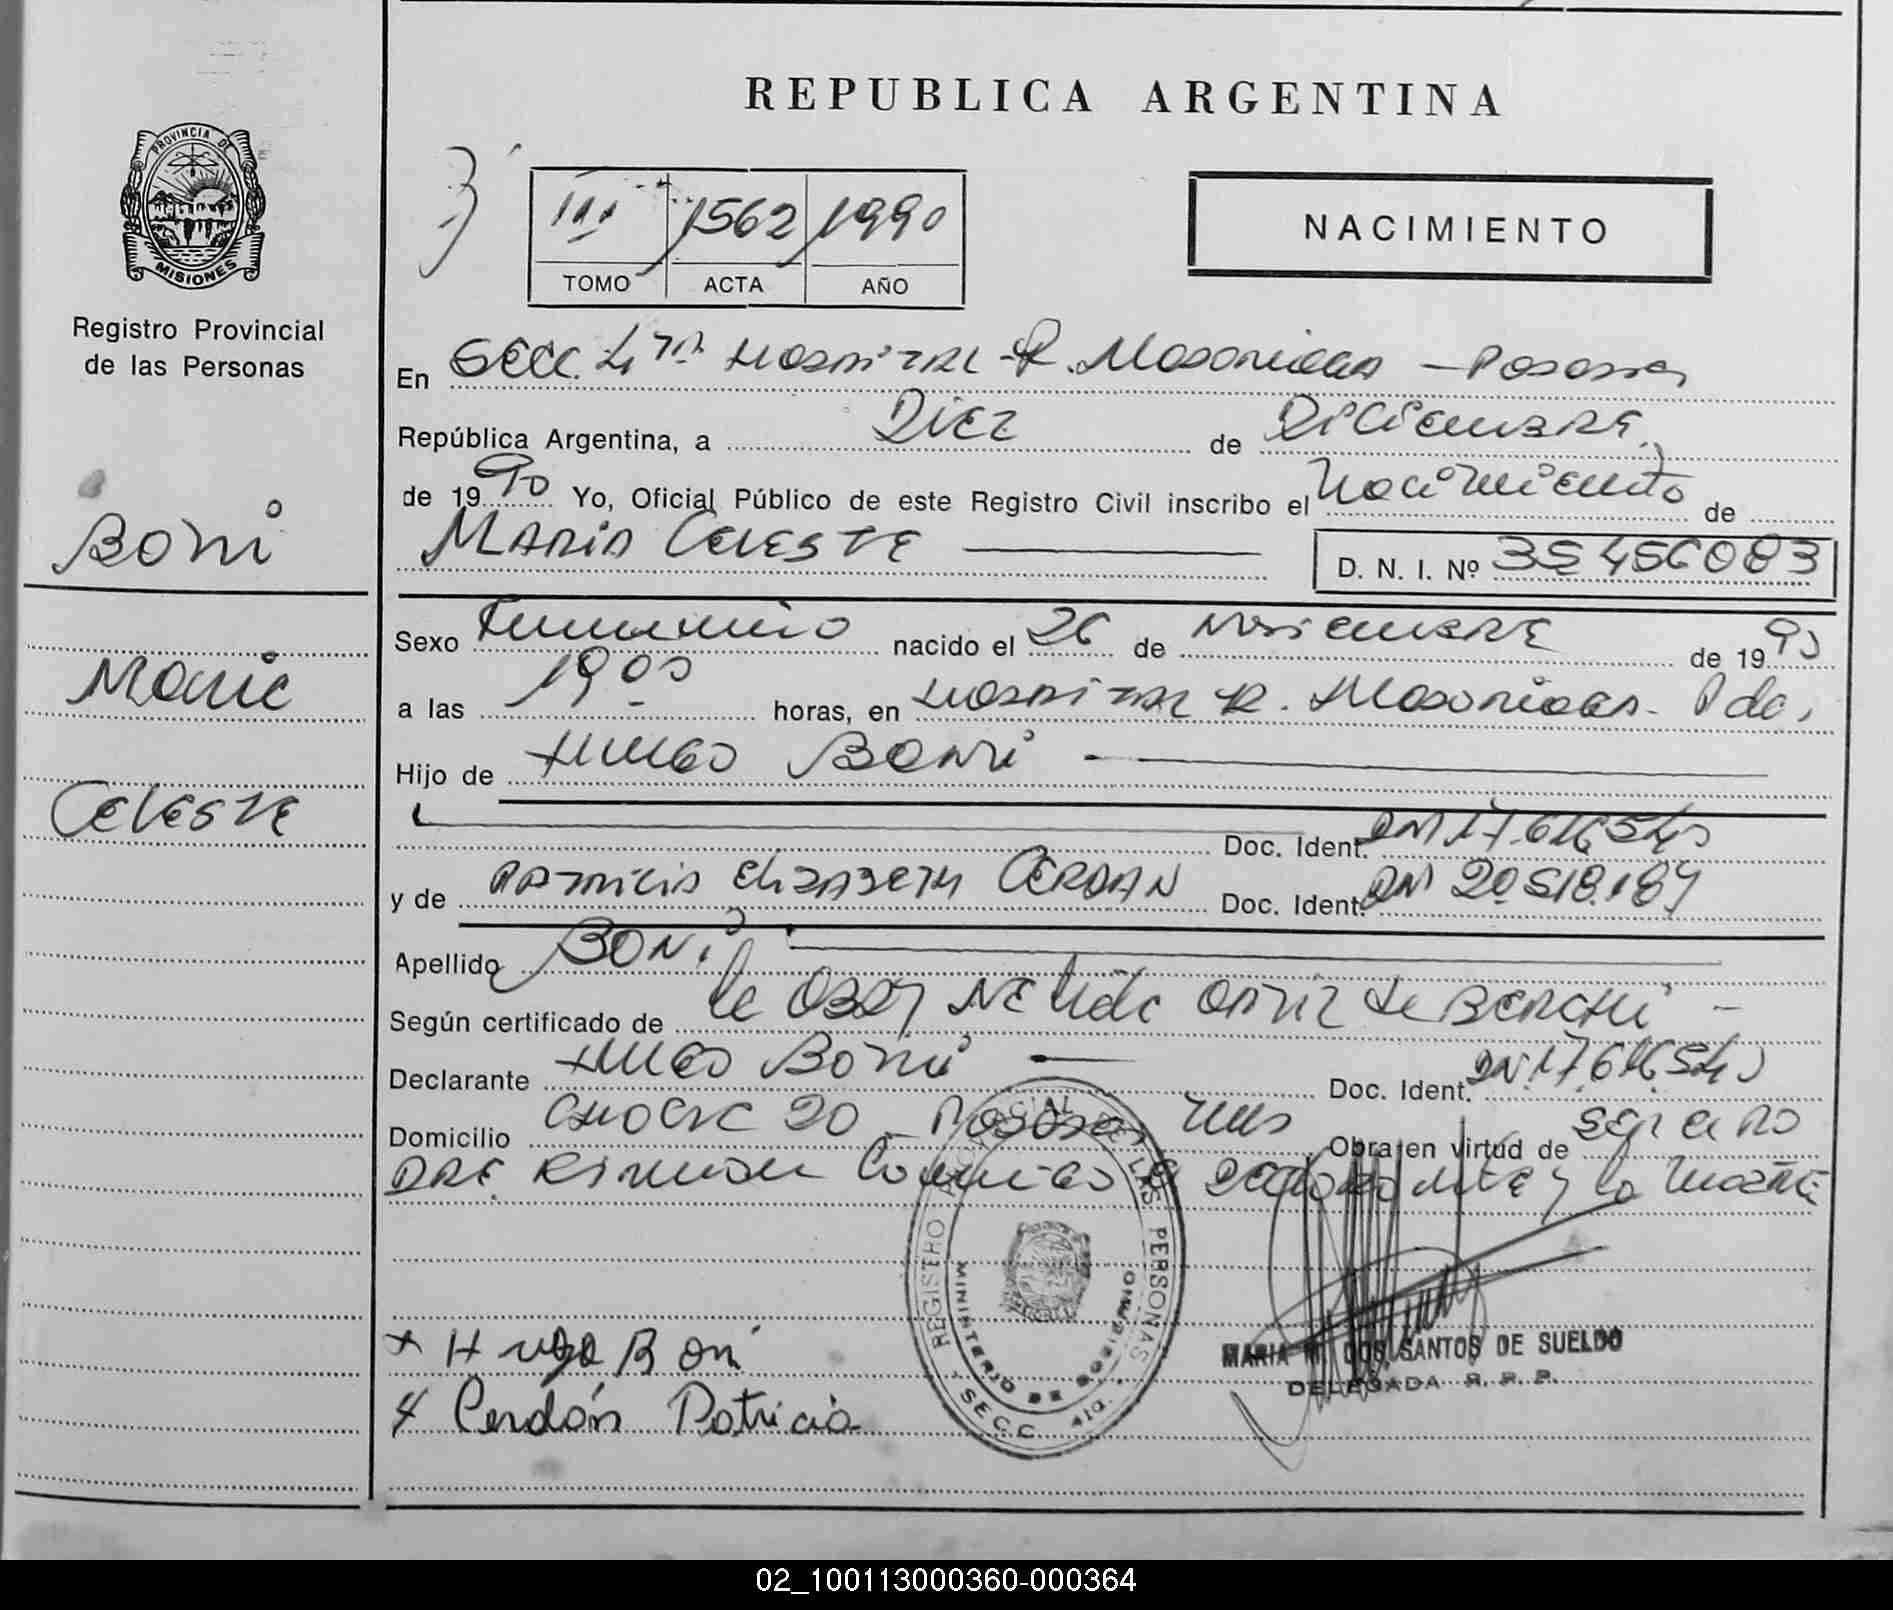 REPUBLICA ARGENTINA
PROVINCIA DE MISIONES
Registro Provincial
de las Personas
III 1562 1990
TOMO ACTA AÑO
NACIMIENTO
En Secc. 4ta Hospital R. Madariaga - Posadas
República Argentina, a Diez de Diciembre
de 1990 Yo, Oficial Público de este Registro Civil inscribo el Nacimiento de
Maria Celeste D. N. I. Nº 35456083
Boni
Maria
Celeste
Sexo Femenino nacido el 26 de Noviembre de 1990
a las 19,00 horas, en Hospital R. Madariaga - Pdas
Hijo de Hugo Boni
Doc. Ident. DNI 17.616.540
y de Patricia Elizabeth Cerdan Doc. Ident. DNI 20.518.187
Apellido Boni
Según certificado de la Obst. Nelida Ortiz de Berchi -
Declarante Hugo Boni Doc. Ident. DNI 17.616.540
Domicilio Chacra 20 - Posadas Mns Obra en virtud de ser el pa
dre Firman conmigo el declarante y la madre
x Hugo Boni
x Cerdán Patricia
REGISTRO PROVINCIAL DE LAS PERSONAS
MINISTERIO DE GOBIERNO
SECC. 4ta.
MARIA M. DOS SANTOS DE SUELDO
DELEGADA R. P. P.
02_100113000360-000364